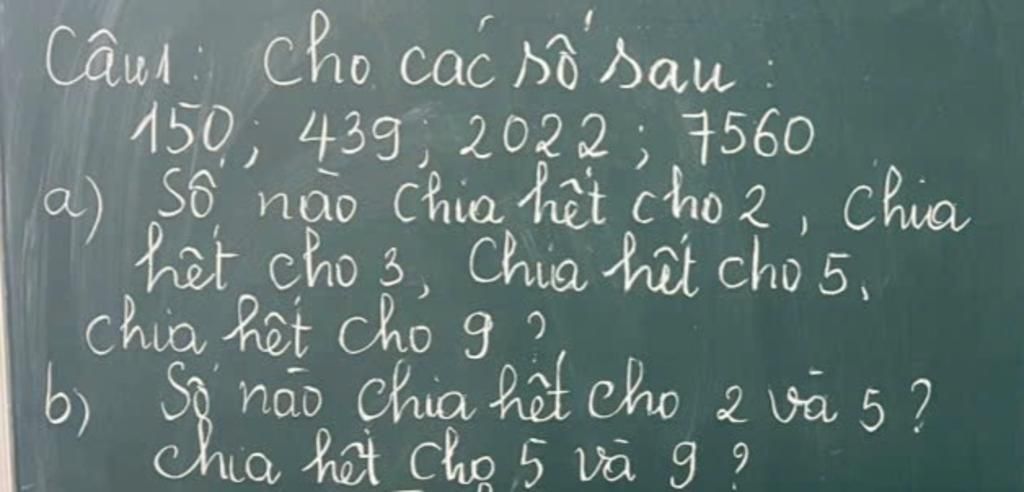 Câu1: Cho các số sau:
150; 439; 2022; 7560
a) Số nào chia hết cho 2, chia
hết cho 3, chia hết cho 5,
chia hết cho 9?
b) Số nào chia hết cho 2 và 5?
chia hết cho 5 và 9?